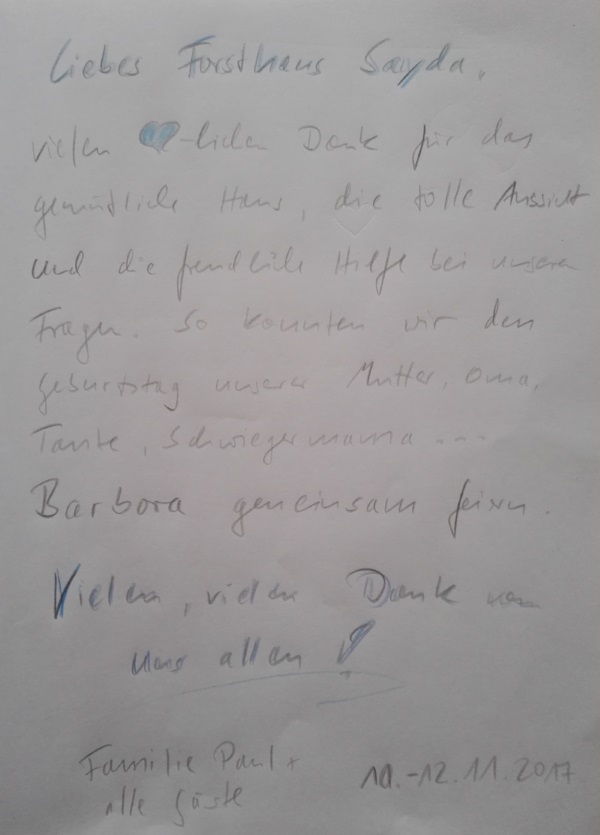 Liebes Forsthaus Sayda,
vielen ♥-lichen Dank für das
gemütliche Haus, die tolle Aussicht
und die freundliche Hilfe bei unseren
Fragen. So konnten wir den
Geburtstag unserer Mutter, Oma,
Tante, Schwiegermama ...
Barbora gemeinsam feiern.
Vielen, vielen Dank von
uns allen!
Familie Paul +
alle Gäste
10.-12.11.2017